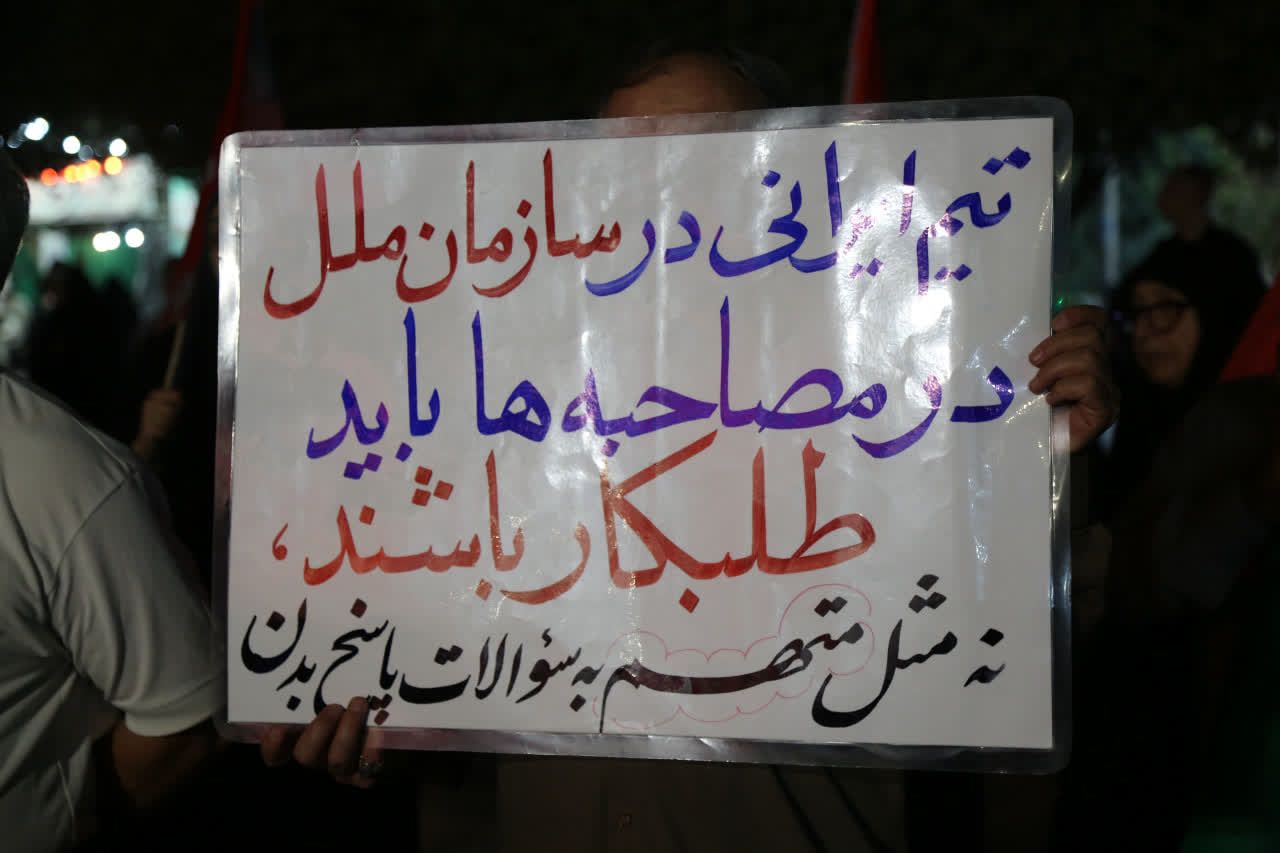 تیم ایرانی در سازمان ملل
در مصاحبه ها باید
طلبکار باشند،
نه مثل متهم به سؤالات پاسخ بدن